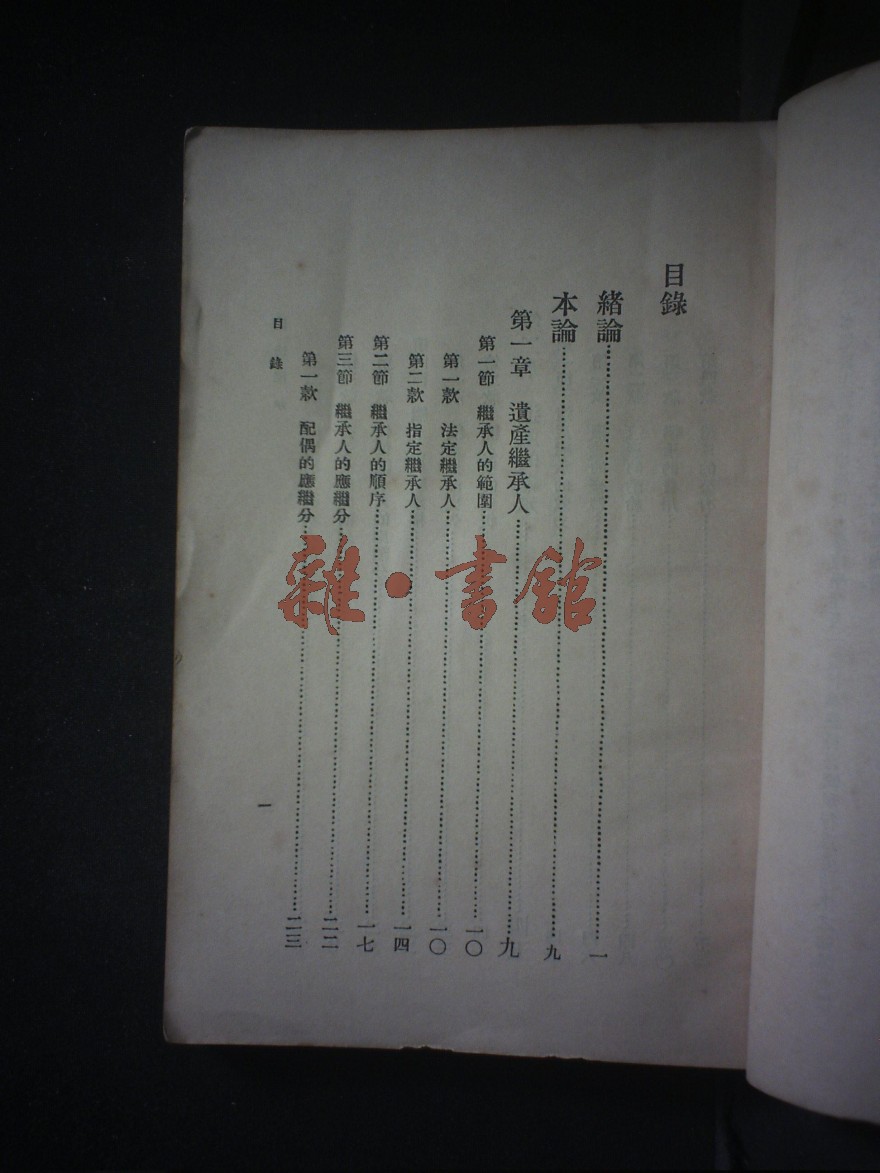 目錄
緒論……一
本論……九
第一章　遺產繼承人……九
第一節　繼承人的範圍……一〇
第一款　法定繼承人……一〇
第二款　指定繼承人……一四
第二節　繼承人的順序……一七
第三節　繼承人的應繼分……二二
第一款　配偶的應繼分……二三
目　錄
一
雜·書館